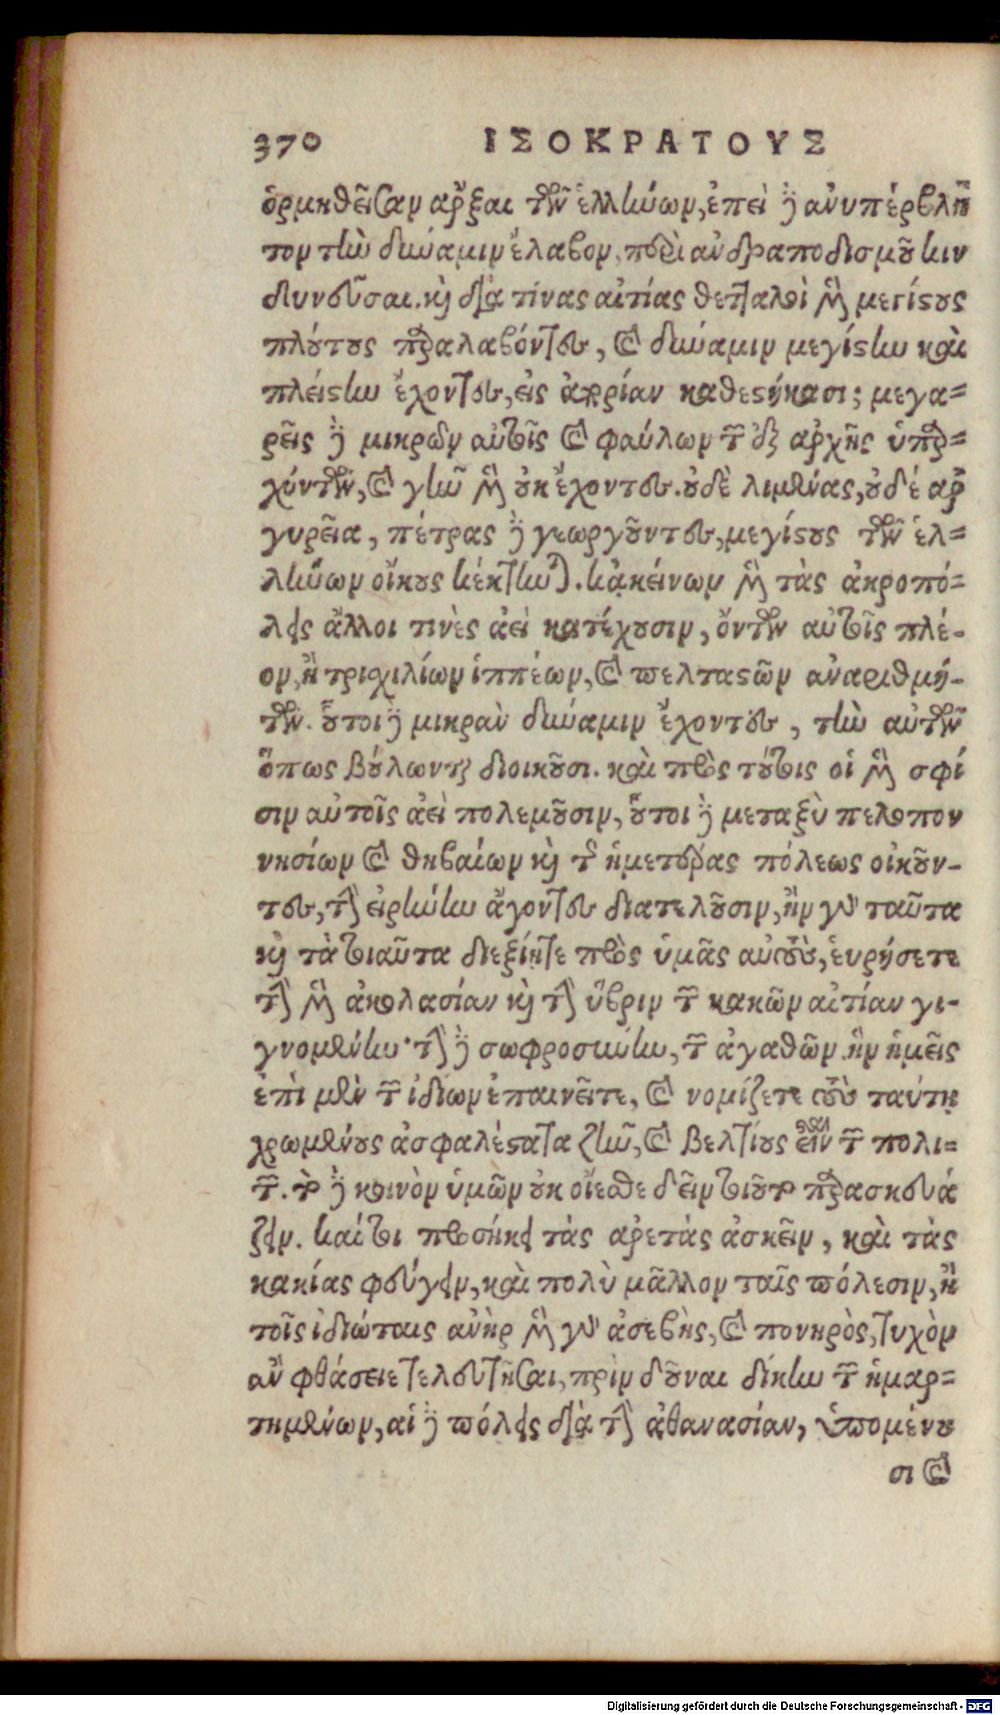 370 ΙΣΟΚΡΑΤΟΥΣ
ὁρμηθεῖσαν ἄρξαι τῶν ἑλλήνων, ἐπεὶ δὲ ἀνυπέρβλη
τον τὴν δύναμιν ἔλαβον, περὶ ἀνδραποδισμοῦ κιν
δυνεῦσαι. καὶ διὰ τίνας αἰτίας θετταλοὶ μὲν μεγίστους
πλούτους παραλαβόντες, καὶ δύναμιν μεγίστην καὶ
πλείστην ἔχοντες, εἰς ἀπορίαν καθεστήκασι; μεγα-
ρεῖς δὲ μικρῶν αὐτοῖς καὶ φαύλων τῶν ἐξ ἀρχῆς ὑπαρ-
χόντων, καὶ γῆν μὲν οὐκ ἔχοντες. οὐδὲ λιμένας, οὐδέ αρ
γυρεῖα, πέτρας δὲ γεωργοῦντες, μεγίστους τῶν ἑλ-
λήνων οἴκους κέκτηνται. κἀκείνων μὲν τὰς ἀκροπό-
λεις ἄλλοι τινὲς ἀεὶ κατέχουσιν, ὄντων αὐτοῖς πλέ-
ον, ἢ τριχιλίων ἱππέων, καὶ πελταστῶν ἀναριθμή-
των. οὗτοι δὲ μικρὰν δύναμιν ἔχοντες, τὴν αὐτῶν
ὅπως βούλονται διοικοῦσι. καὶ πρὸς τούτοις οἱ μὲν σφί
σιν αὐτοῖς ἀεὶ πολεμοῦσιν, οὗτοι δὲ μεταξὺ πελοπον
νησίων καὶ θηβαίων καὶ τῆς ἡμετέρας πόλεως οἰκοῦν-
τες, τὴν εἰρήνην ἄγοντες διατελοῦσιν, ἢν γὰρ ταῦτα
καὶ τὰ τοιαῦτα διεξίητε πρὸς ὑμᾶς αὐτούς, εὑρήσετε
τὴν μὲν ἀκολασίαν καὶ τὴν ὕβριν τῶν κακῶν αἰτίαν γι-
γνομένην· τὴν δὲ σωφροσύνην, τῶν ἀγαθῶν. ἣν ἡμεῖς
ἐπὶ μὲν τῶν ἰδίων ἐπαινεῖτε, καὶ νομίζετε τοὺς ταύτῃ
χρωμένους ἀσφαλέστατα ζῆν, καὶ βελτίους εἶναι τῶν πολι-
τῶν. τὸ δὲ κοινὸν ὑμῶν οὐκ οἴεσθε δεῖν τοιοῦτο παρασκευά
ζειν. καίτοι προσήκει τὰς ἀρετὰς ἀσκεῖν, καὶ τὰς
κακίας φεύγειν, καὶ πολὺ μᾶλλον ταῖς πόλεσιν, ἢ
τοῖς ἰδιώταις ἀνὴρ μὲν γὰρ ἀσεβὴς, καὶ πονηρὸς, τυχὸν
ἂν φθάσειε τελευτῆσαι, πρὶν δοῦναι δίκην τῶν ἡμαρ-
τημένων, αἱ δὲ πόλεις διὰ τὴν ἀθανασίαν, ὑπομένου
σι καὶ
Digitalisierung gefördert durch die Deutsche Forschungsgemeinschaft - DFG